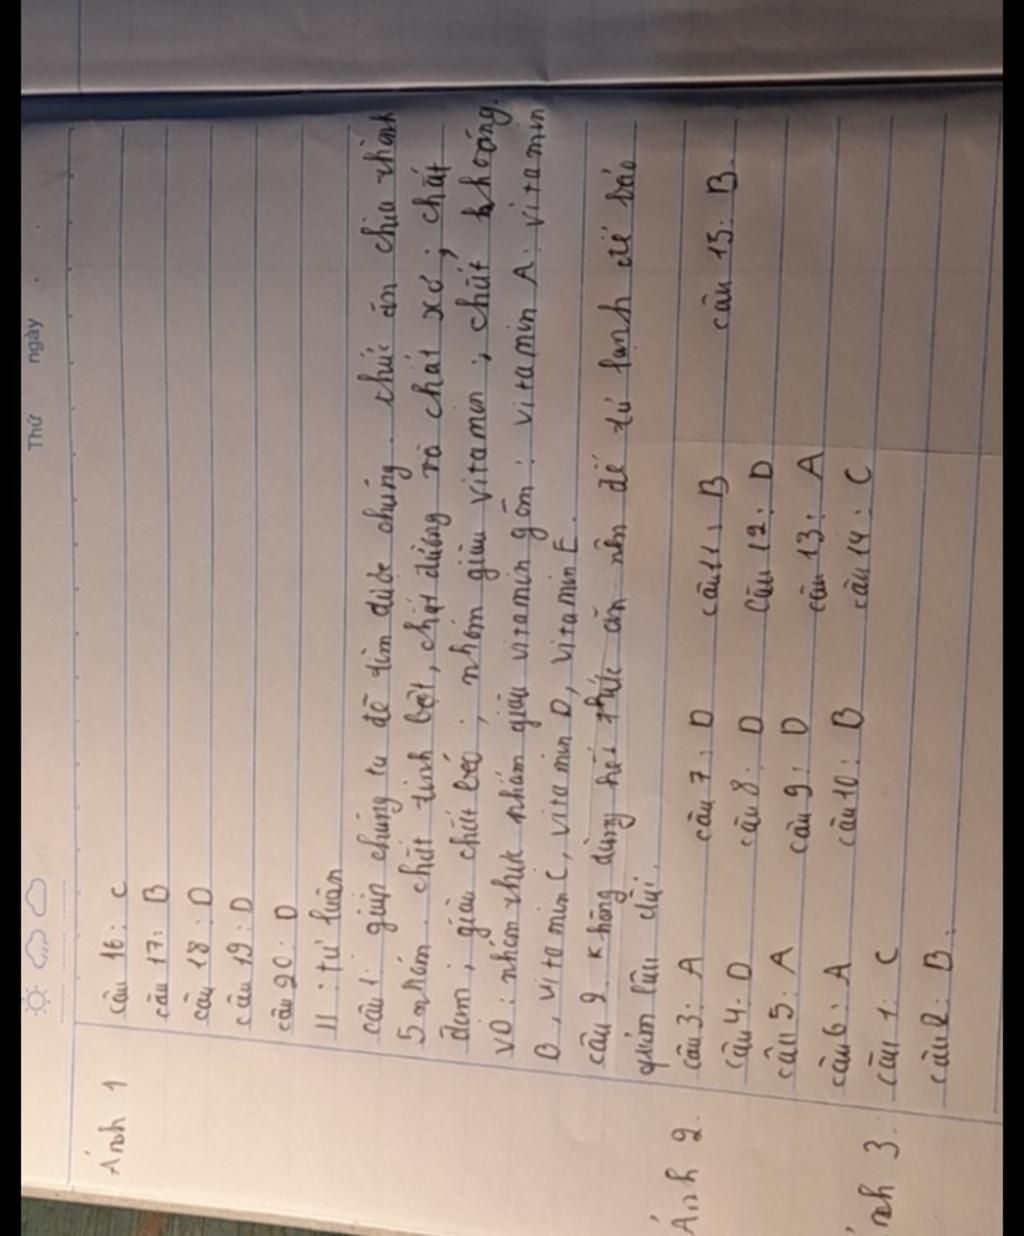 Thứ ngày
Ảnh 1
câu 16: C
câu 17: B
câu 18: D
câu 19: D
câu 20: D
II: tự luận
câu 1: giúp chúng ta dễ tìm được chúng. thức ăn chia thành
5 nhóm. chất tinh bột, chất đường và chất xơ; chất
đạm; giàu chất béo; nhóm giàu vitamin; chất khoáng.
VD: nhóm thuk nhóm giàu vitamin gồm: vitamin A: vitamin
B, vitamin C, vitamin D, vitamin E.
câu 2 không dùng hết thức ăn nên để tủ lạnh để bảo
quản lâu dài.
Ảnh 2.
câu 3: A câu 7: D câu 11: B câu 15: B.
câu 4. D câu 8: D câu 12: D
câu 5: A câu 9: D câu 13: A
câu 6: A câu 10: B câu 14: C
ảnh 3. câu 1: C
câu 2: B.